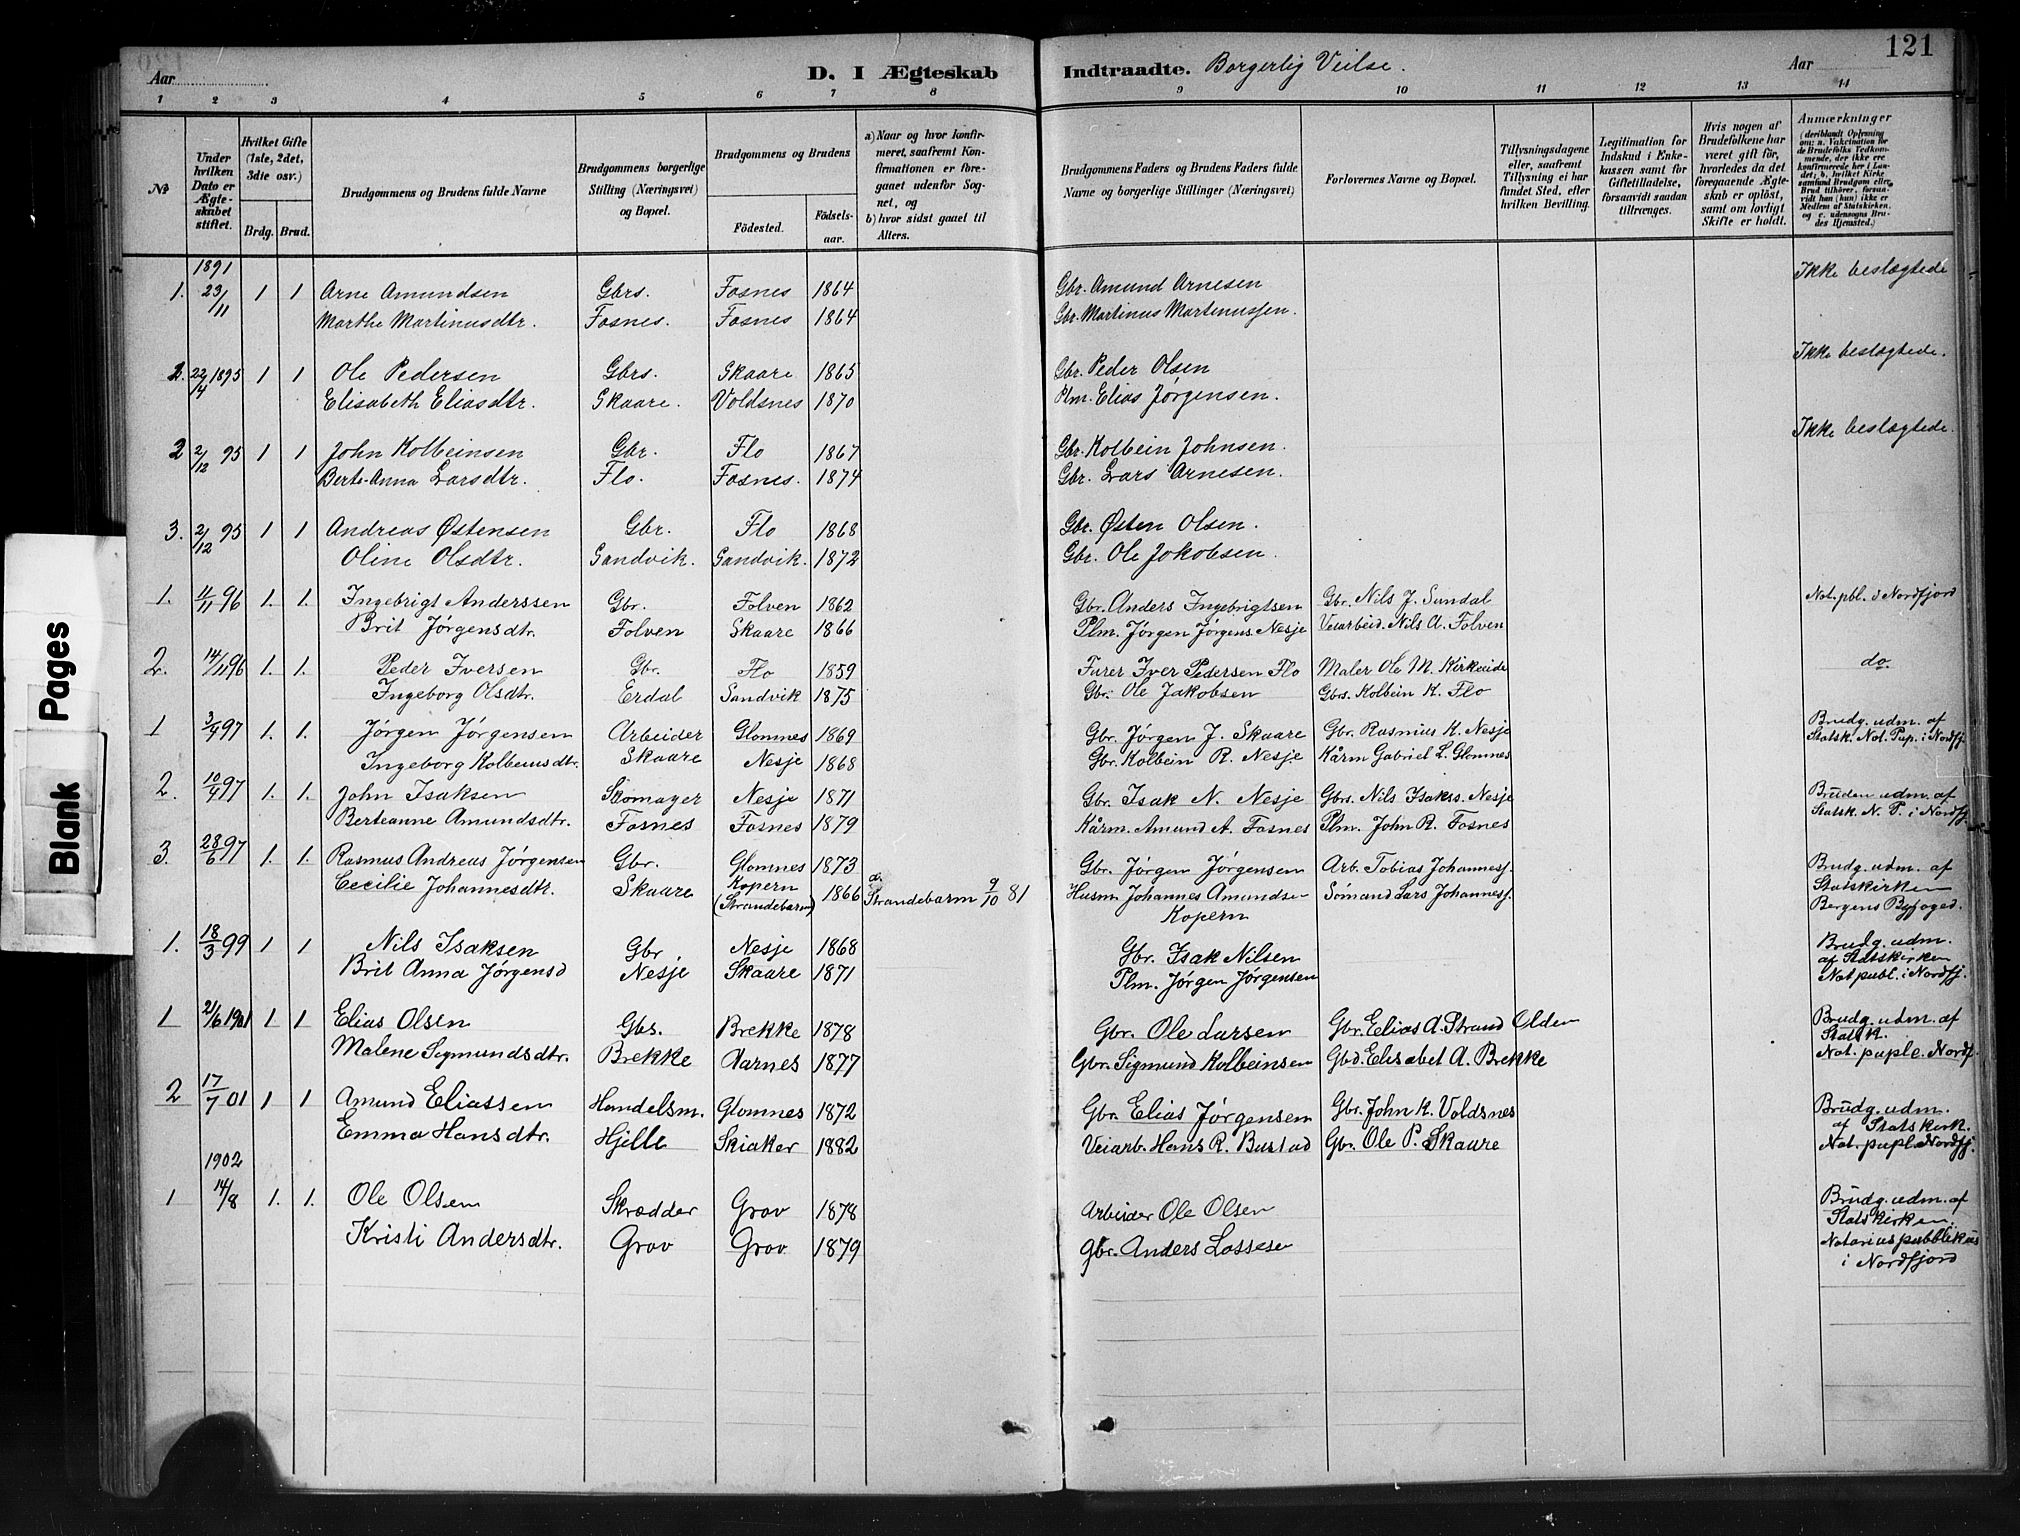 121
Aar
D. I Ægteskab
Indtraadte. Borgerlig Veilse.
Aar
1 2 3 4 5 6 7 8 9 10 11 12 13 14
№
Under hvilken Dato er Ægteskabet stiftet.
Hvilket Gifte (1ste, 2det, 3die osv.)
Brdg. Brud.
Brudgommens og Brudens fulde Navne
Brudgommens borgerlige Stilling (Næringsvei) og Bopæl.
Brudgommens og Brudens
Födested. Födselsaar.
a) Naar og hvor konfirmeret, saafremt Konfirmationen er foregaaet udenfor Sognet, og
b) hvor sidst gaaet til Alters.
Brudgommens Faders og Brudens Faders fulde Navne og borgerlige Stillinger (Næringsvei)
Forlovernes Navne og Bopæl.
Tillysningsdagene eller, saafremt Tillysning ei har fundet Sted, efter hvilken Bevilling.
Legitimation for Indskud i Enkekassen samt for Giftetilladelse, forsaavidt saadan tiltrænges.
Hvis nogen af Brudefolkene har været gift för, hvorledes da det foregaaende Ægteskab er oplöst, samt om lovligt Skifte er holdt.
Anmærkninger
(deriblandt Oplysning om: a. Vakcination for de Brudefolks Vedkommende, der ikke ere konfirmerede her i Landet; b. hvilket Kirkesamfund Brudgom eller Brud tilhörer, forsaavidt han (hun) ikke er Medlem af Statskirken, og c. udensogns Brudes Hjemsted.)
1891
1. 23/11 1 1 Arne Amundsen Gbrs. Fosnes 1864 Gbr. Amund Arnesen Ikke beslægtede
Marthe Martinusdtr. Fosnes. Fosnes 1864 Gbr. Martinus Martinussen.
2. 22/4 1895 1 1 Ole Pedersen Gbrs. Skaare 1865 Gbr. Peder Olsen Ikke beslægtede.
Elisabeth Eliasdtr. Skaare. Voldsnes 1870 Plm. Elias Jørgensen.
2 2/12 95 1 1 John Kolbeinsen Gbr. Flo 1867 Gbr. Kolbein Johnsen. Ikke beslægtede.
Berte-Anna Larsdtr. Flo. Fosnes. 1874 Gbr. Lars Arnesen.
3. 2/12 95 1 1 Andreas Østensen Gbr. Flo 1868 Gbr. Østen Olsen.
Oline Olsdtr. Sandvik. Sandvik. 1872 Gbr. Ole Jakobsen.
1. 11/11 96 1. 1. Ingebrigt Anderssen Gbr. Folven 1862 Gbr. Anders Ingebrigtsen Gbr. Nils J. Sundal Not. pbl. i Nordfjord
Brit Jørgensdtr. Folven Skaare 1866 Plm. Jørgen Jørgens. Nesje Veiarbeid. Nils A. Folven
2. 14/11 96 1. 1. Peder Iversen Gbr. Flo 1859 Furer Iver Pedersen Flo Maler Ole M. Kirkeide do.
Ingeborg Olsdtr. Erdal Sandvik 1875 Gbr. Ole Jakobsen Gbrs. Kolbein K. Flo
1 3/4 97 1. 1. Jørgen Jørgensen Arbeider Glomnes 1869 Gbr. Jørgen J. Skaare Gbr. Rasmus K. Nesje Brudg. udm. af
Ingeborg Kolbeinsdtr. Skaare Nesje 1868 Gbr. Kolbein R. Nesje Kårm Gabriel L. Glomnes Statsk. Not. Pup. i Nordfj.
2. 10/4 97 1. 1. John Isaksen Skomager Nesje 1871 Gbr. Isak N. Nesje Gbrs. Nils Isaks. Nesje Bruden udm. af
Berteanne Amundsdtr. Fosnes Fosnes 1879 Kårm. Amund A. Fosnes Plm. John R. Fosnes Statsk. N. P. i Nordfj
3. 28/6 97 1. 1. Rasmus Andreas Jørgensen Gbr. Glomnes 1873 Gbr. Jørgen Jørgensen Arb. Tobias Johannesf. Brudg. udm. af
Cecilie Johannesdtr. Skaare Kopern (Strandebarm) 1866 a) Strandebarm 9/10 81 Husm. Johannes Amundsen Kopern Sømand Lars Johannesf. Statskirken
Bergens Byfoged.
1. 18/3 99 1 1 Nils Isaksen Gbr Nesje 1868 Gbr. Isak Nilsen Brudg. udm.
Brit Anna Jørgensd Nesje Skaare 1871 Plm. Jørgen Jørgensen af Statskirken
Not publ. i Nordfj.
1 21/6 1901 1 1 Elias Olsen Gbs. Brekke 1878 Gbr. Ole Larsen Gbr. Elias A. Strand Olden Brudg. udm. af
Statsk.
Malene Sigmundsdtr. Brekke Aarnes 1877 Gbr. Sigmund Kolbeinsen Gbd. Elisabet A. Brekke Not. puple. Nordf.
2 17/7 01 1 1 Amund Eliassen Handelsm. Glomnes 1872 Gbr. Elias Jørgensen Gbr. John K. Voldsnes Brudg. udm.
af Statskirk.
Emma Hansdtr. Hjelle Skiaker 1882 Veiarb. Hans R. Bustad Gbr. Ole P. Skaare Not. puple Nordfj.
1902
1 14/8 1. 1. Ole Olsen Skrædder Grov 1878 Arbeider Ole Olsen Brudg. udm. af
Statskirken.
Kristi Andersdtr. Grov Grov 1879 Gbr. Anders Lassesen Notarius pubblikus
i Nordfjord
Blank Pages